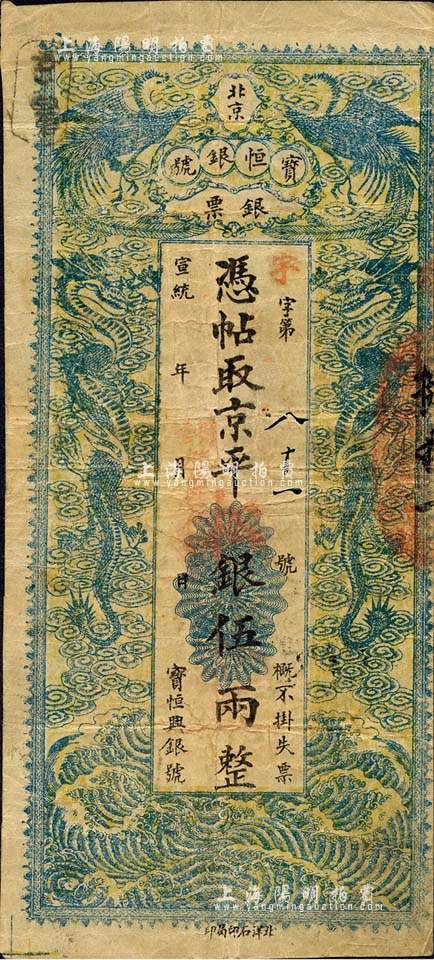 上海陽明拍賣
www.yangmingauction.com
北京
寶恒銀號
銀票
字
字第八十一號
概不掛失票
憑帖取京平銀伍兩整
宣統 年 月 日
寶恒興銀號
上海陽明拍賣
www.yangmingauction.com
上海陽明拍賣
www.yangmingauction.com
北洋石印局印